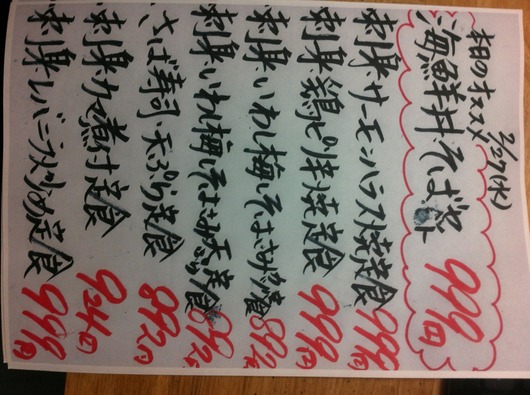 2/27(水)
本日のオススメ
海鮮丼そばセット 999円
刺身サーモンハラス焼定食 999円
刺身鶏ピリ辛焼定食 999円
刺身いわし梅しそはさみ揚定食 892円
刺身いわし梅しそはさみ天定食 892円
さば寿司天ぷら定食 892円
刺身 煮付定食 924円
刺身レバニラ炒め定食 999円